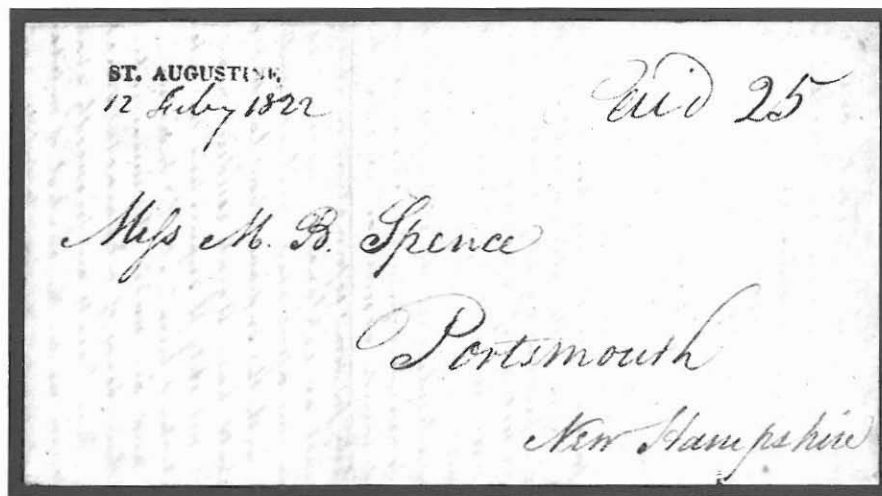 ST. AUGUSTINE,
12 Feby 1822
Paid 25
Miss M. B. Spence
Portsmouth
New Hampshire